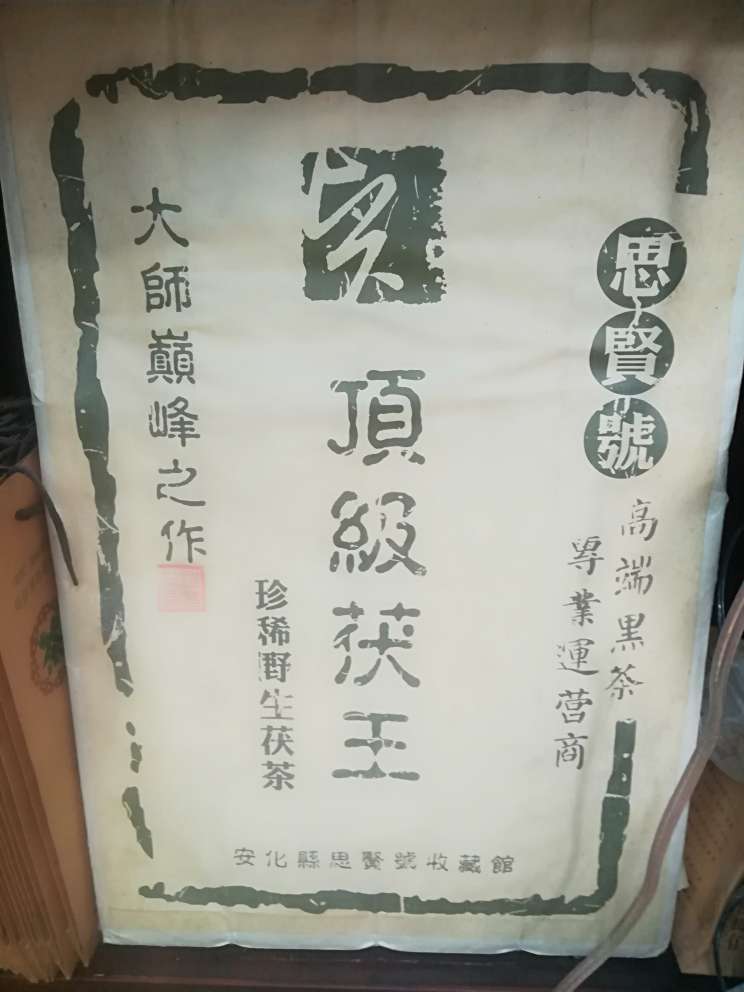 思賢號
高端黑茶
專業運营商
頂級茯王
珍稀野生茯茶
大師巔峰之作
安化縣思賢號收藏館